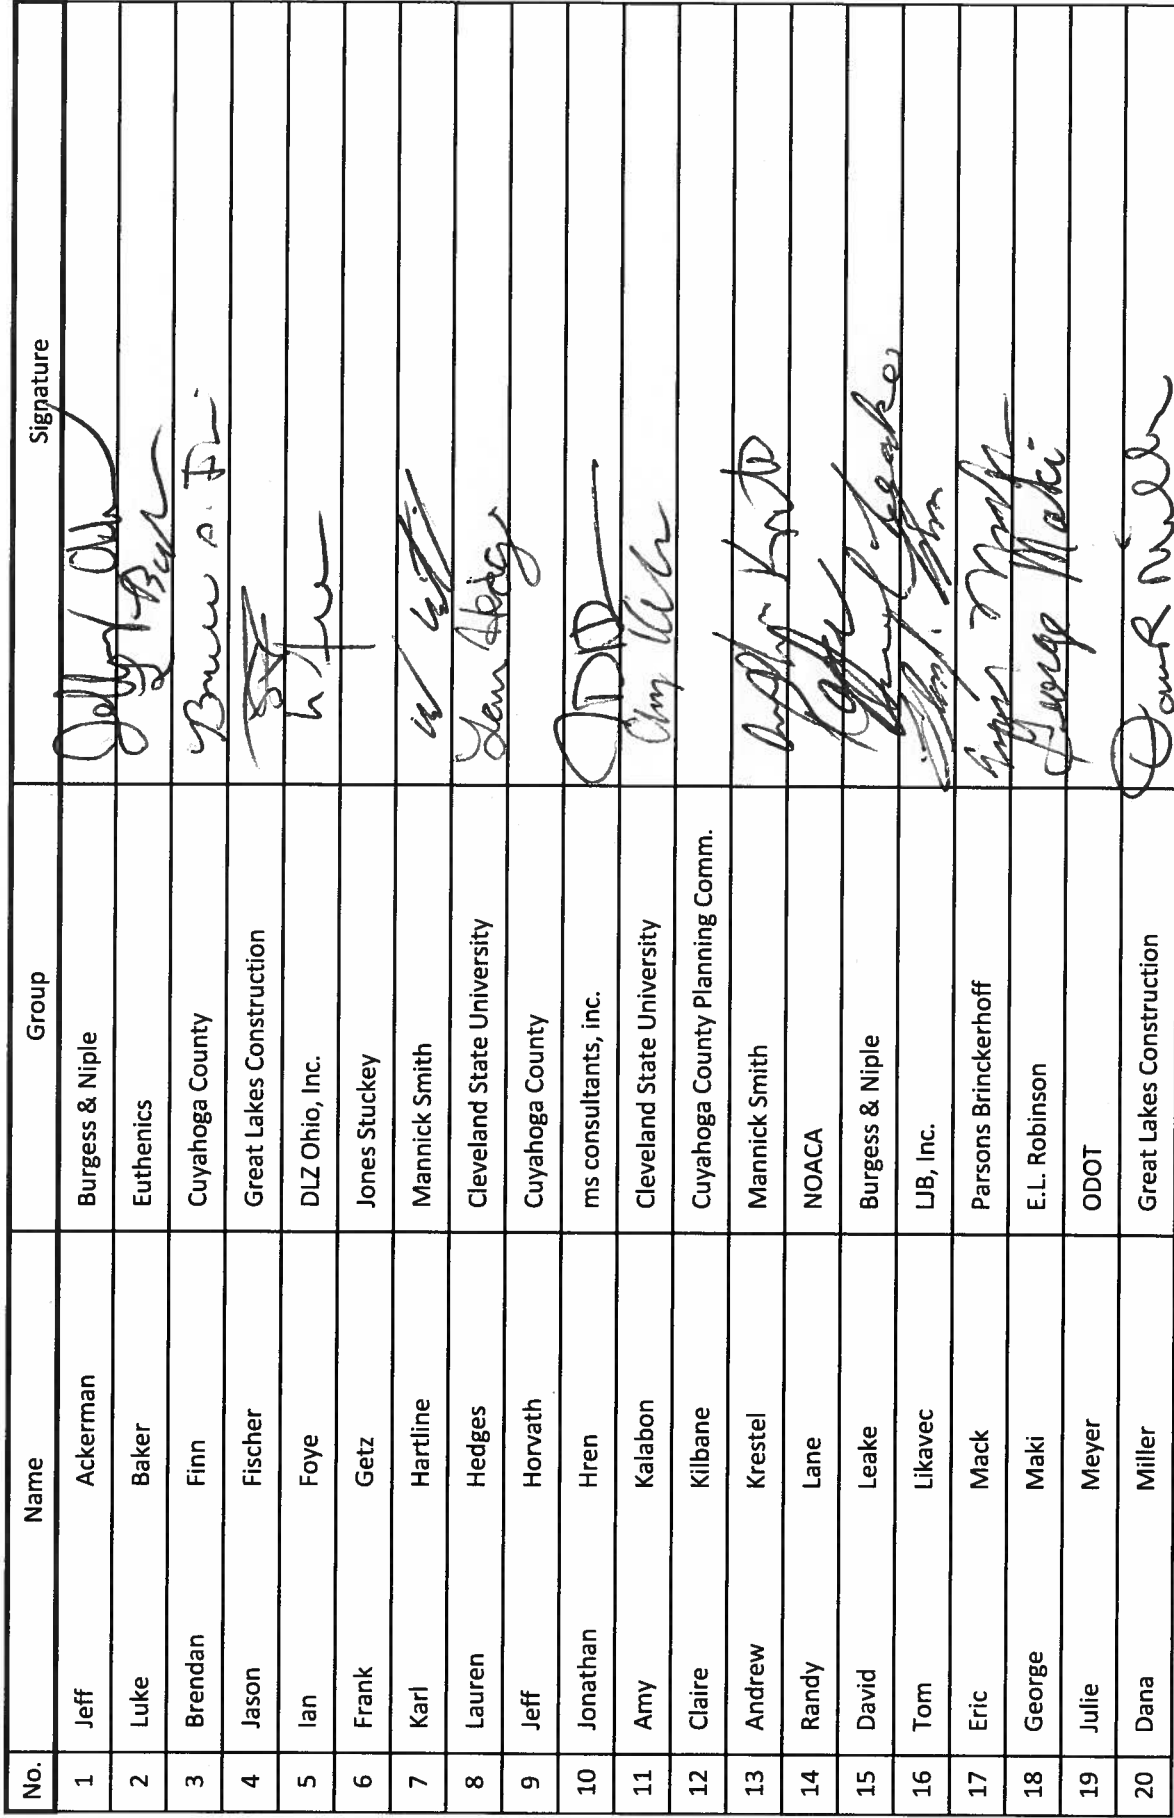 No. Name Group Signature
1 Jeff Ackerman Burgess & Niple
2 Luke Baker Euthenics
3 Brendan Finn Cuyahoga County
4 Jason Fischer Great Lakes Construction
5 Ian Foye DLZ Ohio, Inc.
6 Frank Getz Jones Stuckey
7 Karl Hartline Mannick Smith
8 Lauren Hedges Cleveland State University
9 Jeff Horvath Cuyahoga County
10 Jonathan Hren ms consultants, inc.
11 Amy Kalabon Cleveland State University Amy
12 Claire Kilbane Cuyahoga County Planning Comm.
13 Andrew Krestel Mannick Smith
14 Randy Lane NOACA
15 David Leake Burgess & Niple Leake
16 Tom Likavec LJB, Inc.
17 Eric Mack Parsons Brinckerhoff
18 George Maki E.L. Robinson George Maki
19 Julie Meyer ODOT
20 Dana Miller Great Lakes Construction